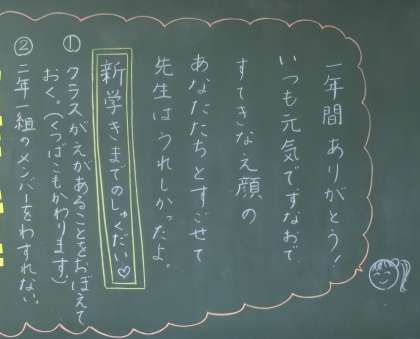 一年間ありがとう！
いつも元気ですなおで、
すてきなえ顔の
あなたたちとすごせて
先生はうれしかったよ。
新学きまでのしゅくだい♡
①クラスがえがあることをおぼえて
おく。（くつばこもかわります）
②二年一組のメンバーをわすれない。